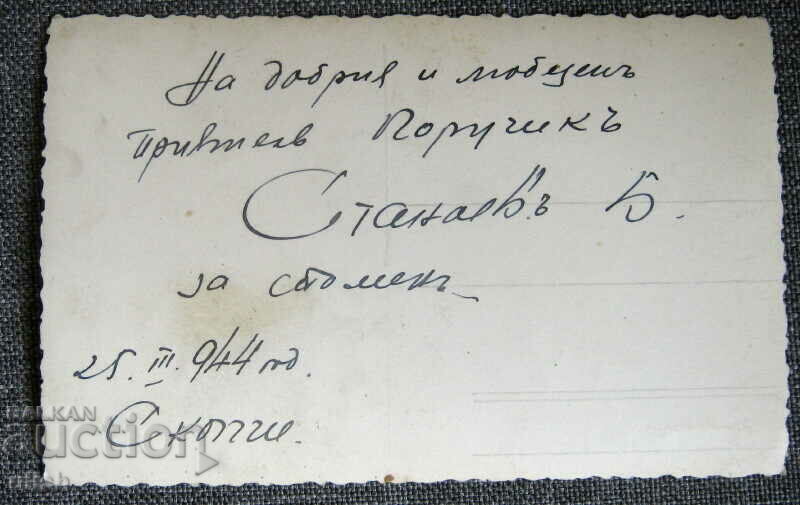 На добрия и любезенъ
приятель Поручикъ
Станоевъ Б.
за споменъ
25. III. 944 год.
Скопие.
BALKAN
auction